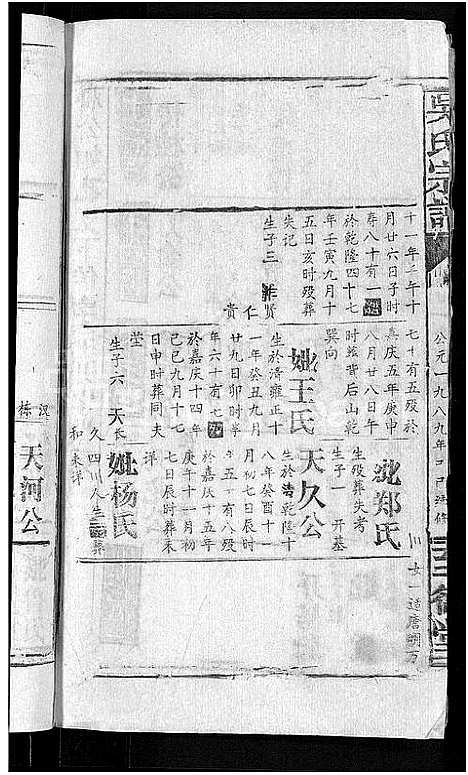 吴氏宗譜
公元一九八九年己巳
十一年
月廿六日子时
寿八十有一
於乾隆四十七
年壬寅九月十
五日亥时殁葬
失记
生子三 祚贤
仁
贵
七十有五殁於
嘉庆五年庚申
八月廿八日午
时
背后山乾
巽向
妣王氏
生於清雍正十
一年癸丑九月
廿九日卯时享
年六十有七
於嘉庆十四年
己巳九月十七
日申时葬同夫
茔
生子六 天长
久
和
川 女一适唐明万
妣郑氏
生殁葬失考
生子一 开基
天久公
生於清乾隆十
八年癸酉十一
月初七日辰时
年五十有八殁
於嘉庆十五年
庚午十一月初
七日辰时葬朱
洋
妣杨氏
四川人生葬
未详
天河公
栋 汉